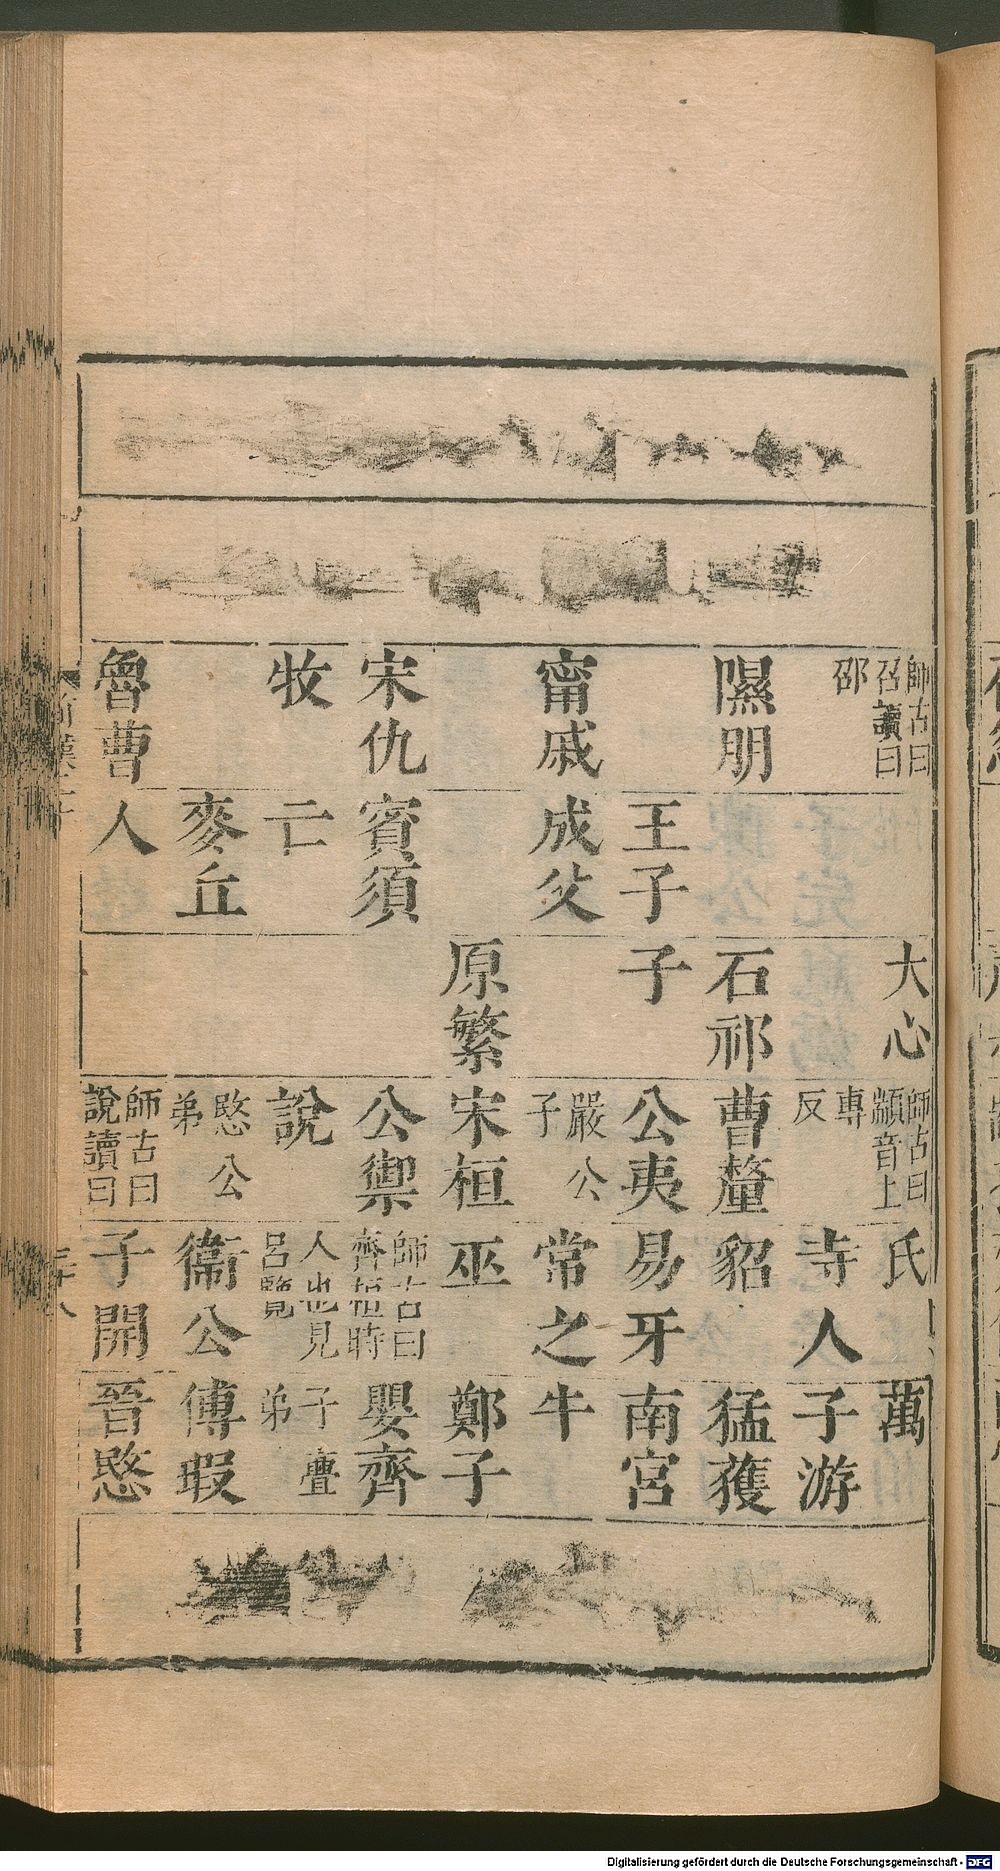 師古曰
召讀曰
邵
隰朋
甯戚
宋仇
牧
魯曹
王子
成父
賓須
亡
麥丘
人
大心
石祁
子
原繁
師古曰
顓音上
專
反
曹釐
公夷
嚴公
子
宋桓
公禦
說
愍公
弟
師古曰
說讀曰
氏
寺人
貂
易牙
常之
巫
師古曰
齊桓時
人也見
呂覽
衞公
子開
萬
子游
猛獲
南宮
牛
鄭子
嬰齊
子亹
弟
傅瑕
晉愍
Digitalisierung gefördert durch die Deutsche Forschungsgemeinschaft - DFG